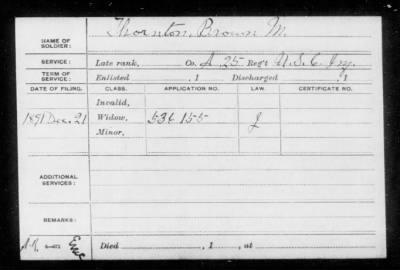 NAME OF SOLDIER: Thornton, Brown M.
SERVICE: Late rank, Co. A 25 Reg't U.S.C. Inf.
TERM OF SERVICE: Enlisted , 1 Discharged , 1
DATE OF FILING. CLASS. APPLICATION NO. LAW. CERTIFICATE NO.
Invalid,
1891 Dec. 21 Widow, 536 155 J
Minor,
ADDITIONAL SERVICES:
REMARKS:
Died , 1 , at